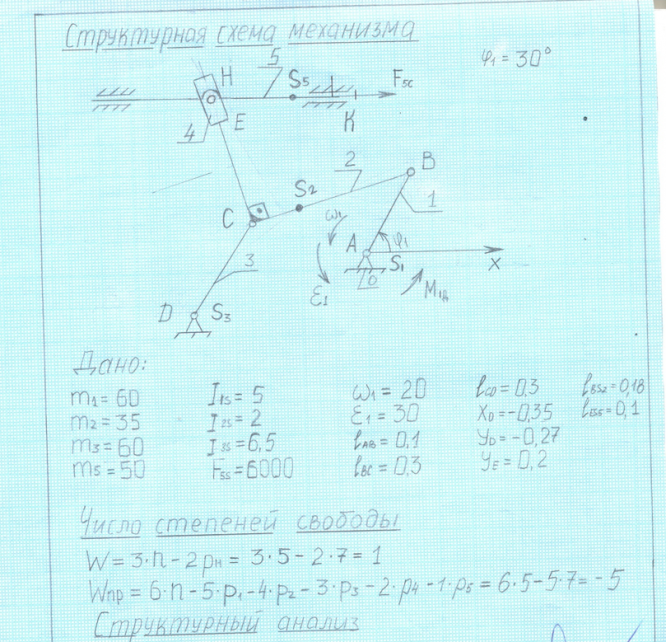 Структурная схема механизма
φ₁ = 30°
5
H
S₅
F₅c
4
E
K
2
B
S₂
1
C
ω₁
A
φ₁
3
ε₁
0
S₁
x
M₁д
D
S₃
Дано:
m₁ = 60 I₁s = 5 ω₁ = 20 lCD = 0,3 lBS₂ = 0,18
m₂ = 35 I₂s = 2 ε₁ = 30 XD = -0,35 lES₅ = 0,1
m₃ = 60 I₃s = 6,5 lAB = 0,1 YD = -0,27
m₅ = 50 F₅s = 6000 lBC = 0,3 YE = 0,2
Число степеней свободы
W = 3·n - 2pн = 3·5 - 2·7 = 1
Wпр = 6·n - 5·p₁ - 4·p₂ - 3·p₃ - 2·p₄ - 1·p₅ = 6·5 - 5·7 = -5
Структурный анализ